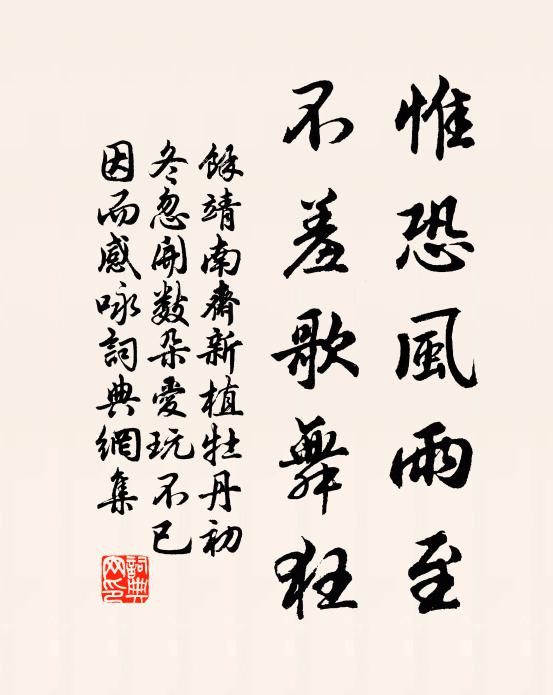 惟恐風雨至
不羞歌舞狂
餘靖南齋新植牡丹初
冬忽開數朵愛玩不已
因而感咏詞典網集
詞典
网印